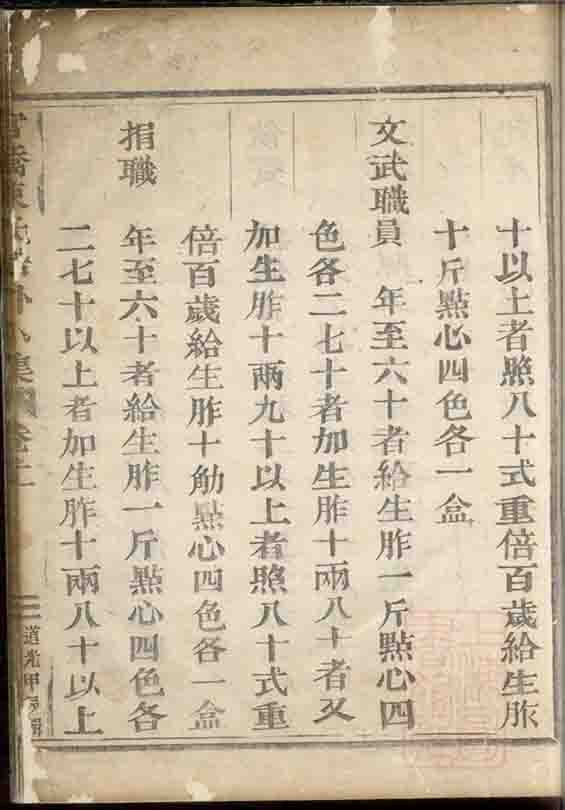 十以上者照八十式重倍百歲給生胙
十斤點心四色各一盒
文武職員 年至六十者給生胙一斤點心四
色各二七十者加生胙十兩八十者又
加生胙十兩九十以上者照八十式重
倍百歲給生胙十觔點心四色各一盒
捐職 年至六十者給生胙一斤點心四色各
二七十以上者加生胙十兩八十以上
集 卷二
道光甲